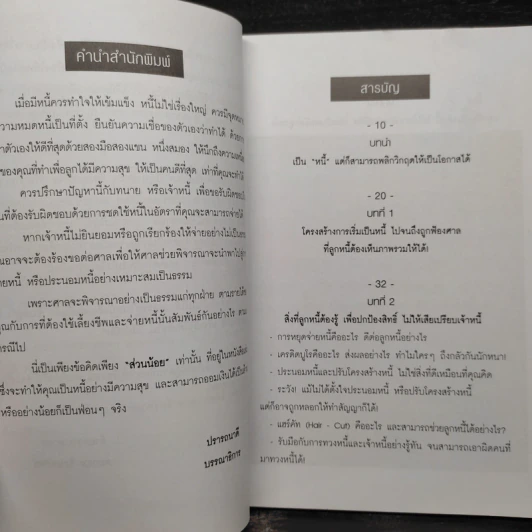 คำนำสำนักพิมพ์
เมื่อมีหนี้ควรทำใจให้เข้มแข็ง หนี้ไม่ใช่เรื่องใหญ่ ควรมี
ความหมดหนี้เป็นที่ตั้ง ยืนยันความเชื่อของตัวเองว่าทำได้
ทำตัวเองให้ดีที่สุดด้วยสองมือสองแขน หนึ่งสมอง ให้นึกถึง
ของคุณที่ทำเพื่อลูกได้มีความสุข ให้เป็นคนดีที่สุด เท่าที่คุณจะ
ควรปรึกษาปัญหานี้กับทนาย หรือเจ้าหนี้ เพื่อขอรับผิดชอบ
ที่ต้องรับผิดชอบด้วยการชดใช้หนี้ในอัตราที่คุณจะสามารถจ่ายได้
หากเจ้าหนี้ไม่ยินยอมหรือถูกเรียกร้องให้จ่ายอย่างไม่เป็น
อาจจะต้องร้องขอต่อศาลเพื่อให้ศาลช่วยพิจารณาจะนำพาไป
หนี้ หรือประนอมหนี้อย่างเหมาะสมเป็นธรรม
เพราะศาลจะพิจารณาอย่างเป็นธรรมแก่ทุกฝ่าย ตามรายได้
คุณกับการที่ต้องใช้เลี้ยงชีพและจ่ายหนี้นั้นสัมพันธ์กันอย่างไร
กรณีไป
นี่เป็นเพียงข้อคิดเพียง "ส่วนน้อย" เท่านั้น ที่อยู่ในหนังสือ
ซึ่งจะทำให้คุณเป็นหนี้อย่างมีความสุข และสามารถออมเงินได้
หรืออย่างน้อยก็เป็นฟอนๆ จริง
ปรารถนาดี
บรรณาธิการ
สารบัญ
- 10 -
บทนำ
เป็น "หนี้" แต่ก็สามารถพลิกวิกฤตให้เป็นโอกาสได้
- 20 -
บทที่ 1
โครงสร้างการเริ่มเป็นหนี้ ไปจนถึงถูกฟ้องศาล
ที่ลูกหนี้ต้องเห็นภาพรวมให้ได้!
- 32 -
บทที่ 2
สิ่งที่ลูกหนี้ต้องรู้ เพื่อปกป้องสิทธิ์ ไม่ให้เสียเปรียบเจ้าหนี้
- การหยุดจ่ายหนี้คืออะไร ดีต่อลูกหนี้อย่างไร
- เครดิตบูโรคืออะไร ส่งผลอย่างไร ทำไมใครๆ ถึงกลัวกันนักหนา!
- ประนอมหนี้และปรับโครงสร้างหนี้ ไม่ใช่สิ่งที่ดีเหมือนที่คุณคิด
- ระวัง! แม้ไม่ได้ตั้งใจประนอมหนี้ หรือปรับโครงสร้างหนี้
แต่ก็อาจถูกหลอกให้ทำสัญญาก็ได้!
- แฮร์คัท (Hair - Cut) คืออะไร และสามารถช่วยลูกหนี้ได้อย่างไร?
- รับมือกับการทวงหนี้และเจ้าหนี้อย่างรู้ทัน จนสามารถเอาผิดคนที่
มาทวงหนี้ได้!